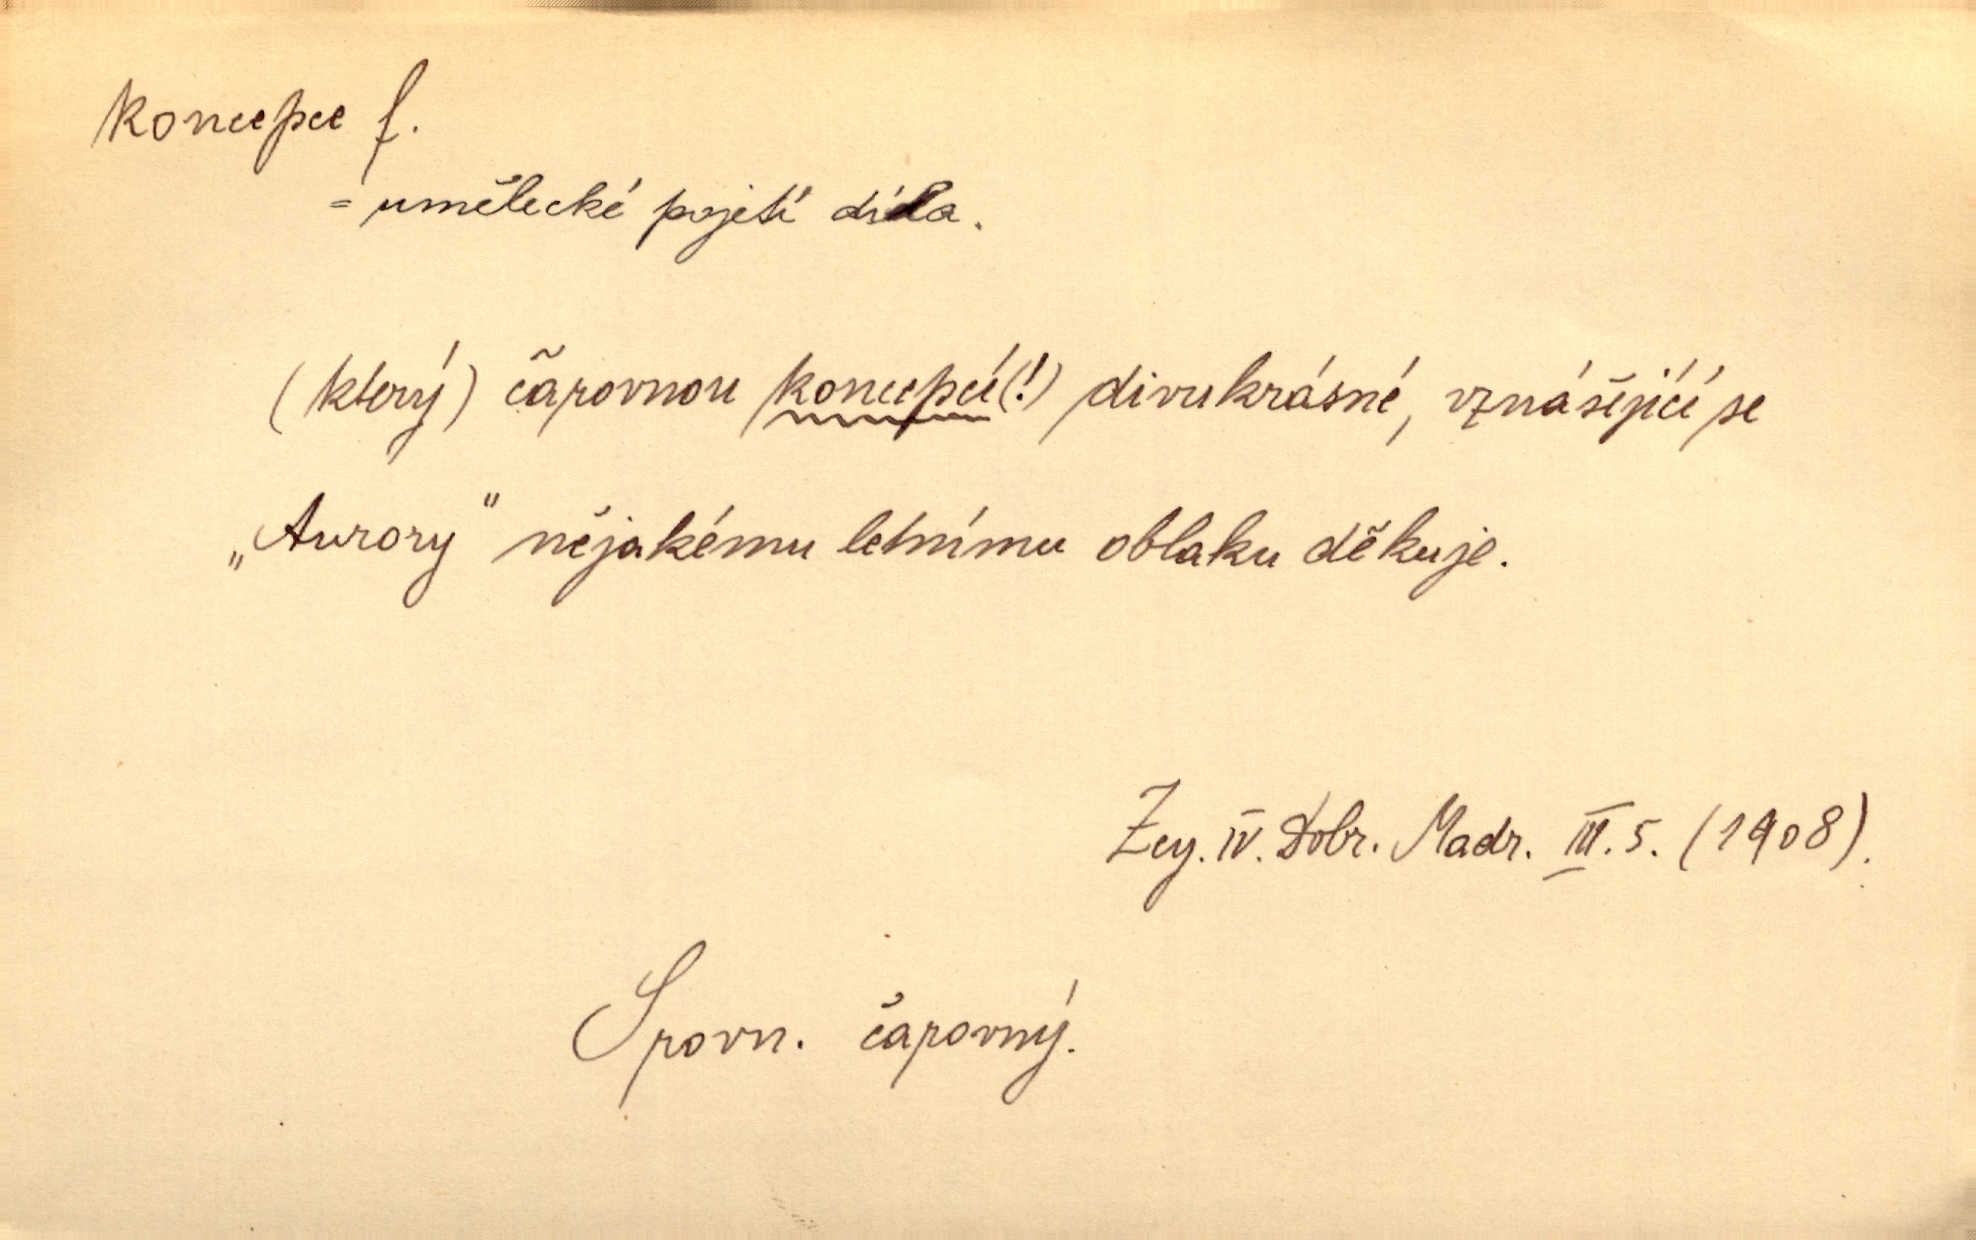 koncepce f.
= umělecké pojetí díla.
(který) čarovnou koncepcí(!) divukrásné, vznášející se
„Aurory" nějakému letnímu oblaku děkuje.
Zey. IV. Dobr. Madr. III. 5. (1908).
Srovn. čarovný.